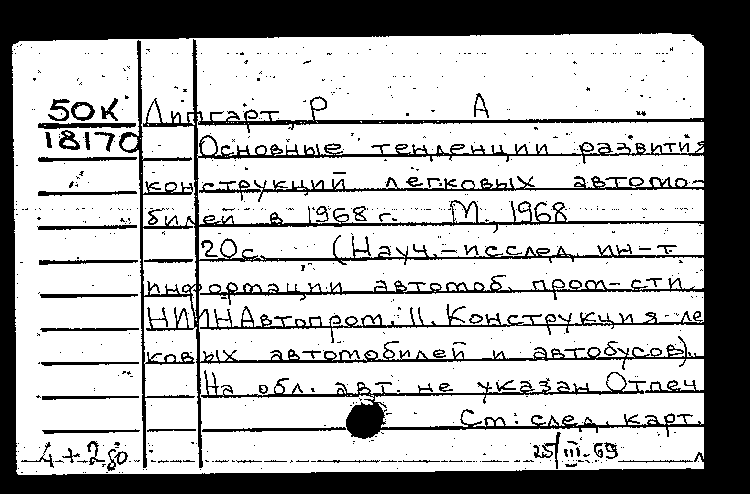 50К Липгарт, Р А
18170 Основные тенденции развития
конструкций легковых автомо-
билей в 1968 г. М., 1968
20с. (Науч.-исслед. ин-т
информации автомоб. пром-сти
НИИНАвтопром. II. Конструкция ле
ковых автомобилей и автобусов).
На обл. авт. не указан Отпеч
См: след. карт.
4+2 80 25/III-69